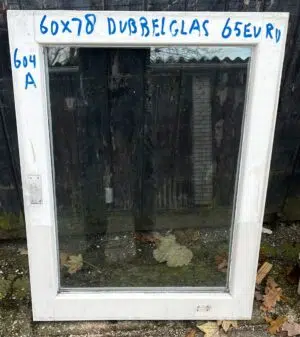 60x78 DUBBELGLAS 65EURO
604
A